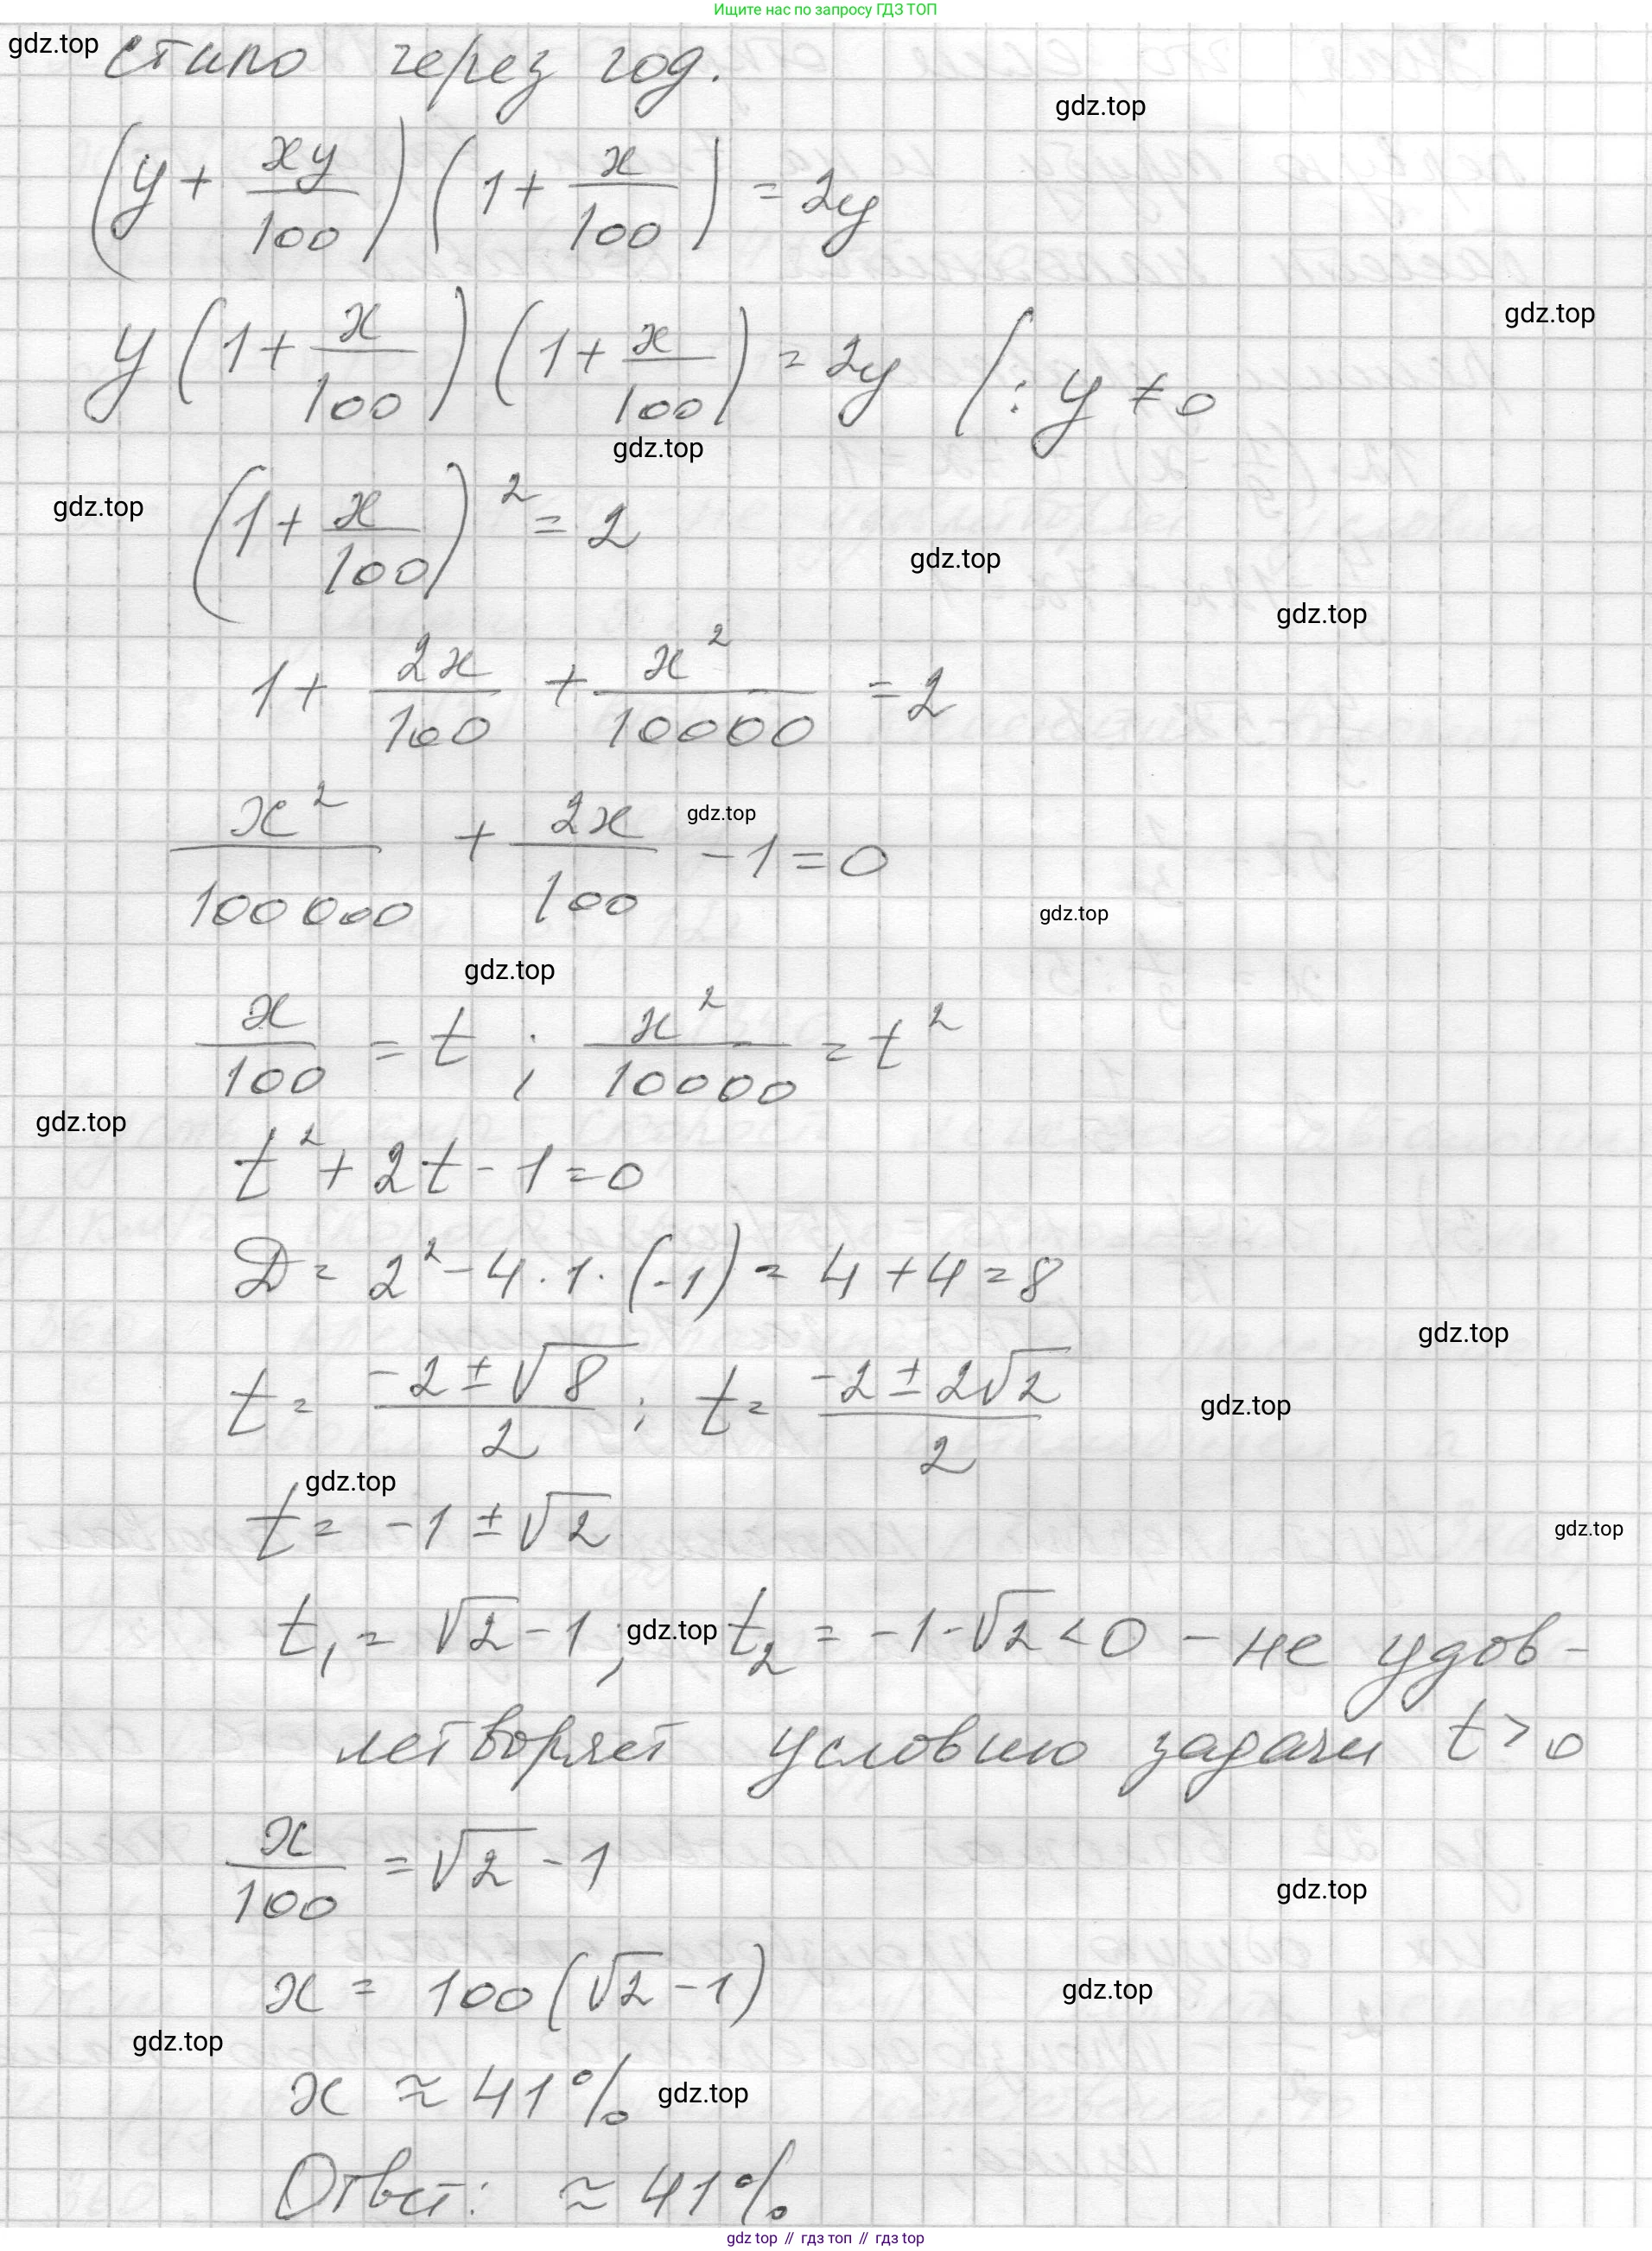 Ищите нас по запросу ГДЗ ТОП
gdz.top стало через год.
gdz.top
(y + xy/100)(1 + x/100) = 2y
gdz.top
y(1 + x/100)(1 + x/100) = 2y | : y ≠ 0
gdz.top
gdz.top
(1 + x/100)² = 2
gdz.top
gdz.top
1 + 2x/100 + x²/10000 = 2
gdz.top
x²/100000 + 2x/100 - 1 = 0
gdz.top
gdz.top
x/100 = t ; x²/10000 = t²
gdz.top
t² + 2t - 1 = 0
D = 2² - 4 · 1 · (-1) = 4 + 4 = 8
gdz.top
t = (-2 ± √8)/2 ; t = (-2 ± 2√2)/2
gdz.top
gdz.top
t = -1 ± √2
gdz.top
t₁ = √2 - 1 ; gdz.top t₂ = -1 - √2 < 0 - не удов-
летворяет условию задачи t > 0
x/100 = √2 - 1
gdz.top
x = 100(√2 - 1)
gdz.top
gdz.top
x ≈ 41% gdz.top
Ответ: ≈ 41%
gdz.top // гдз топ // гдз top